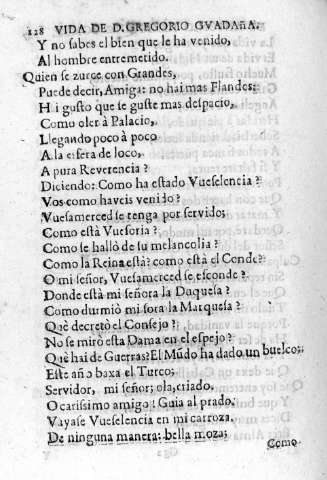 128 VIDA DE D. GREGORIO GVADAñA.
Y no sabes el bien que le ha venido,
Al hombre entremetido.
Quien se zurce con Grandes,
Puede decir, Amiga: no hai mas Flandes;
Hai gusto que se guste mas despacio,
Como oler à Palacio,
Llegando poco à poco
A la esfera de loco,
A pura Reverencia?
Diciendo: Como ha estado Vueselencia?
Vos como haveis venido?
Vuesamerced se tenga por servido;
Como està Vuesoria?
Como se hallò de su melcolia?
Como la Reina està? como està el Conde?
O mi señor, Vuesamerced se esconde?
Donde està mi señora la Duquesa?
Como durmiò mi sora la Marquesa?
Què decretò el Consejo?
No se mirò esta Dama en el espejo?
Què hai de Guerras? El Mũdo ha dado un buelco;
Este año baxa el Turco;
Servidor, mi señor; ola, criado,
O carissimo amigo! Guia al prado.
Vayase Vueselencia en mi carroza.
De ninguna manera: bella moza;
Como